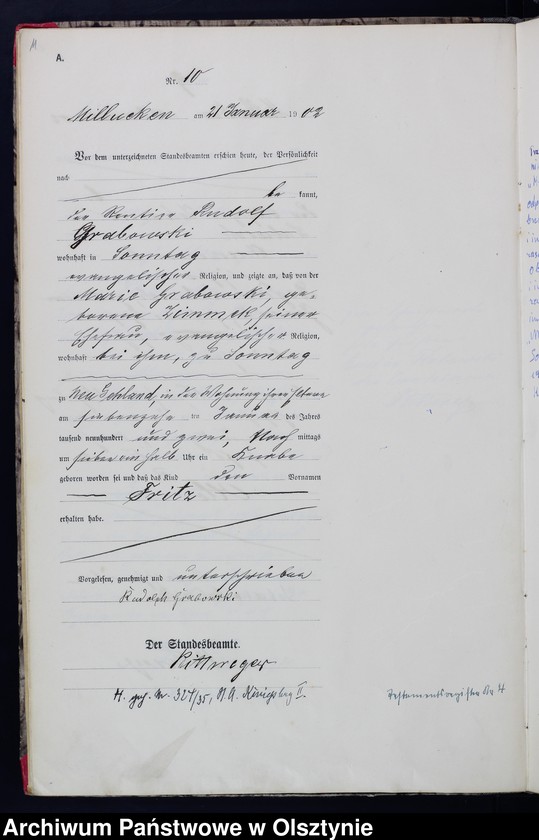 A.
Nr. 10
Milbucken am 21 Januar 1902
Vor dem unterzeichneten Standesbeamten erschien heute, der Persönlichkeit
nach
bekannt,
der Rudolf
Grabowski
wohnhaft in Sonntag
evangelischer Religion, und zeigte an, daß von der
Marie Grabowski, ge-
borene Zimmek, seiner
Ehefrau, evangelischer Religion,
wohnhaft bei ihm, zu Sonntag
zu Neu Gehland, in der Wohnung ihrer Eltern
am siebenzehn ten Januar des Jahres
tausend neunhundert und zwei, Nach mittags
um sieben ein halb Uhr ein Knabe
geboren worden sei und daß das Kind den Vornamen
Fritz
erhalten habe.
Vorgelesen, genehmigt und unterschrieben
Rudolph Grabowski
Der Standesbeamte.
H. 324/35, Königsberg II.
Testamentsregister Nr 4
Archiwum Państwowe w Olsztynie